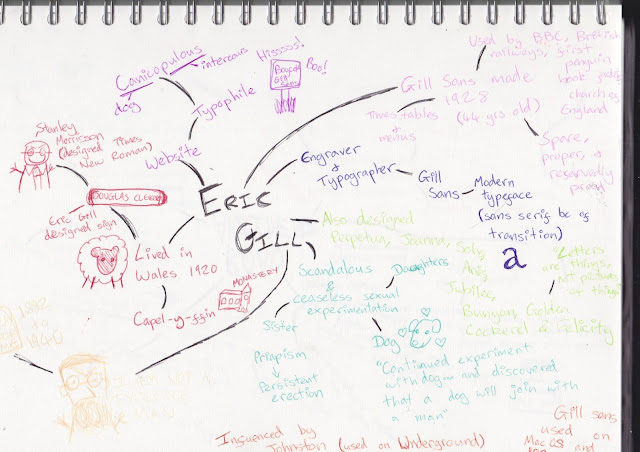 Canicopulous
intercourse
dog
Typophile
Website
Hisssss!
Boo!
Boycott
Gill
Sans
Gill Sans made
1928
(44 yrs old)
Times tables
&
menus
Used by BBC, British
railways, first
penguin
book jackets,
church of
England
Spare,
proper, &
reservedly
proud
Stanley
Morrisson
(designed Times
New Roman)
DOUGLAS CLEVERDON
Eric Gill
designed sign
ERIC
GILL
Engraver
&
Typographer
Gill
Sans
Modern
typeface
(sans serif bc of
transition)
a
Also designed
Perpetua, Joanna,
Aries,
Jubilee,
Bunyan, Golden
Cockerel & Felicity
"Letters
are things,
NT pictures
of things"
Lived in
Wales 1920
Capel-y-ffin
MONASTERY
Scandalous
&
ceaseless sexual
experimentation
Daughters
Sister
Priapism
Persistent
erection
Dog
"Continued experiment
with dog... and discovered
that a dog will join with
a man"
1882
to
1940
Influenced by
Johnston (used on Underground)
Gill sans
used on
Mac OS
and